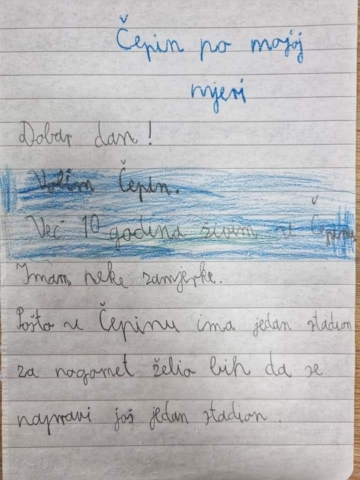 Čepin po mojoj
mjeri
Dobar dan!
Volim Čepin.
Već 10 godina živim u Čepinu
Imam neke zamjerke.
Pošto u Čepinu ima jedan stadion
za nogomet želio bih da se
napravi još jedan stadion.